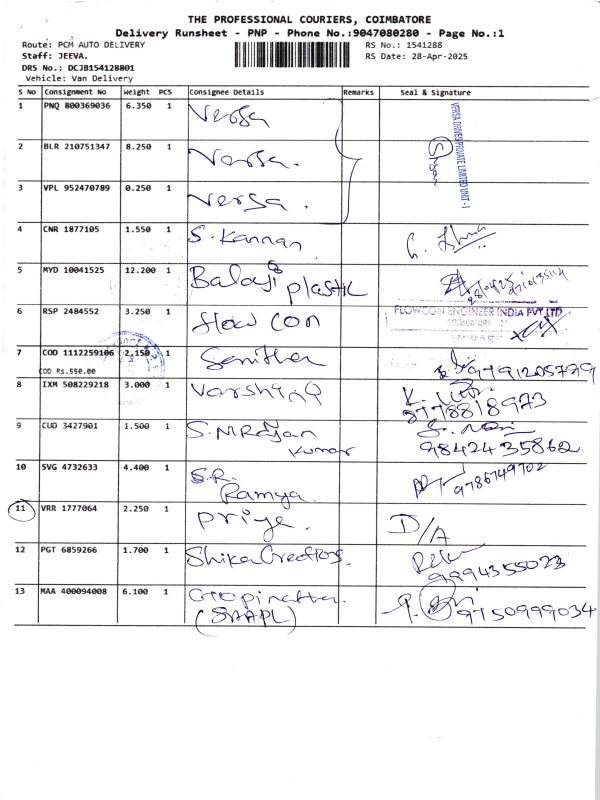 THE PROFESSIONAL COURIERS, COIMBATORE
Delivery Runsheet - PNP - Phone No.:9047080280 - Page No.:1
Route: PCM AUTO DELIVERY RS No.: 1541288
Staff: JEEVA. RS Date: 28-Apr-2025
DRS No.: DCJB154128801
Vehicle: Van Delivery
S No Consignment No Weight PCS Consignee Details Remarks Seal & Signature
1 PNQ 800369036 6.350 1 Versa
VERSA DRIVES PRIVATE LIMITED UNIT-1
2 BLR 210751347 8.250 1 Versa.
3 VPL 952470789 0.250 1 Versa.
4 CNR 1877105 1.550 1 S. Kannan
5 MYD 10041525 12.200 1 Balaji plastic
6 RSP 2484552 3.250 1 flow con FLOWCON ENGINEER INDIA PVT LTD
7 COD 1112259106 2.150 1 9791205799
COD Rs.550.00
8 IXM 508229218 3.000 1 8778818973
9 CUD 3427901 1.500 1 S.M Rajan 98424 35862
Kumar
10 SVG 4732633 4.400 1 S.R. 9786749702
Ramya
11 VRR 1777064 2.250 1 Priya. D/A
12 PGT 6859266 1.700 1 Shika Creations. 9994355023
13 MAA 400094008 6.100 1 Gopinatha 9750999034
(SAAPL)